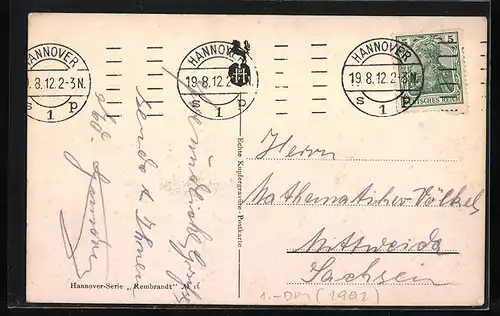 HANNOVER
19.8.12.2-3N.
s 1 p
HANNOVER
19.8.12.2-3N.
s 1 p
H
HANNOVER
19.8.12.2-3N.
s 1 p
5
DEUTSCHES REICH
sendet Ihnen
Echte Kupfergravüre-Postkarte
Herrn
Mathematischer Völkel
Mittweida
Sachsen
1.-DM (1992)
Hannover-Serie „Rembrandt"